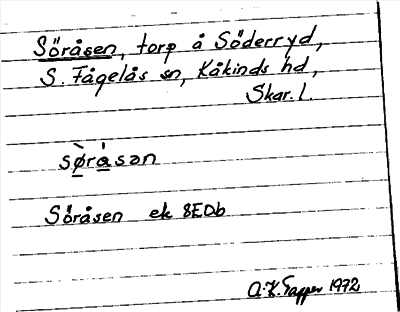 Söråsen, torp å Söderryd,
S. Fågelås sn, Kåkinds hd,
Skar. l.
sø̀rásən
Söråsen ek 8EDb
1972